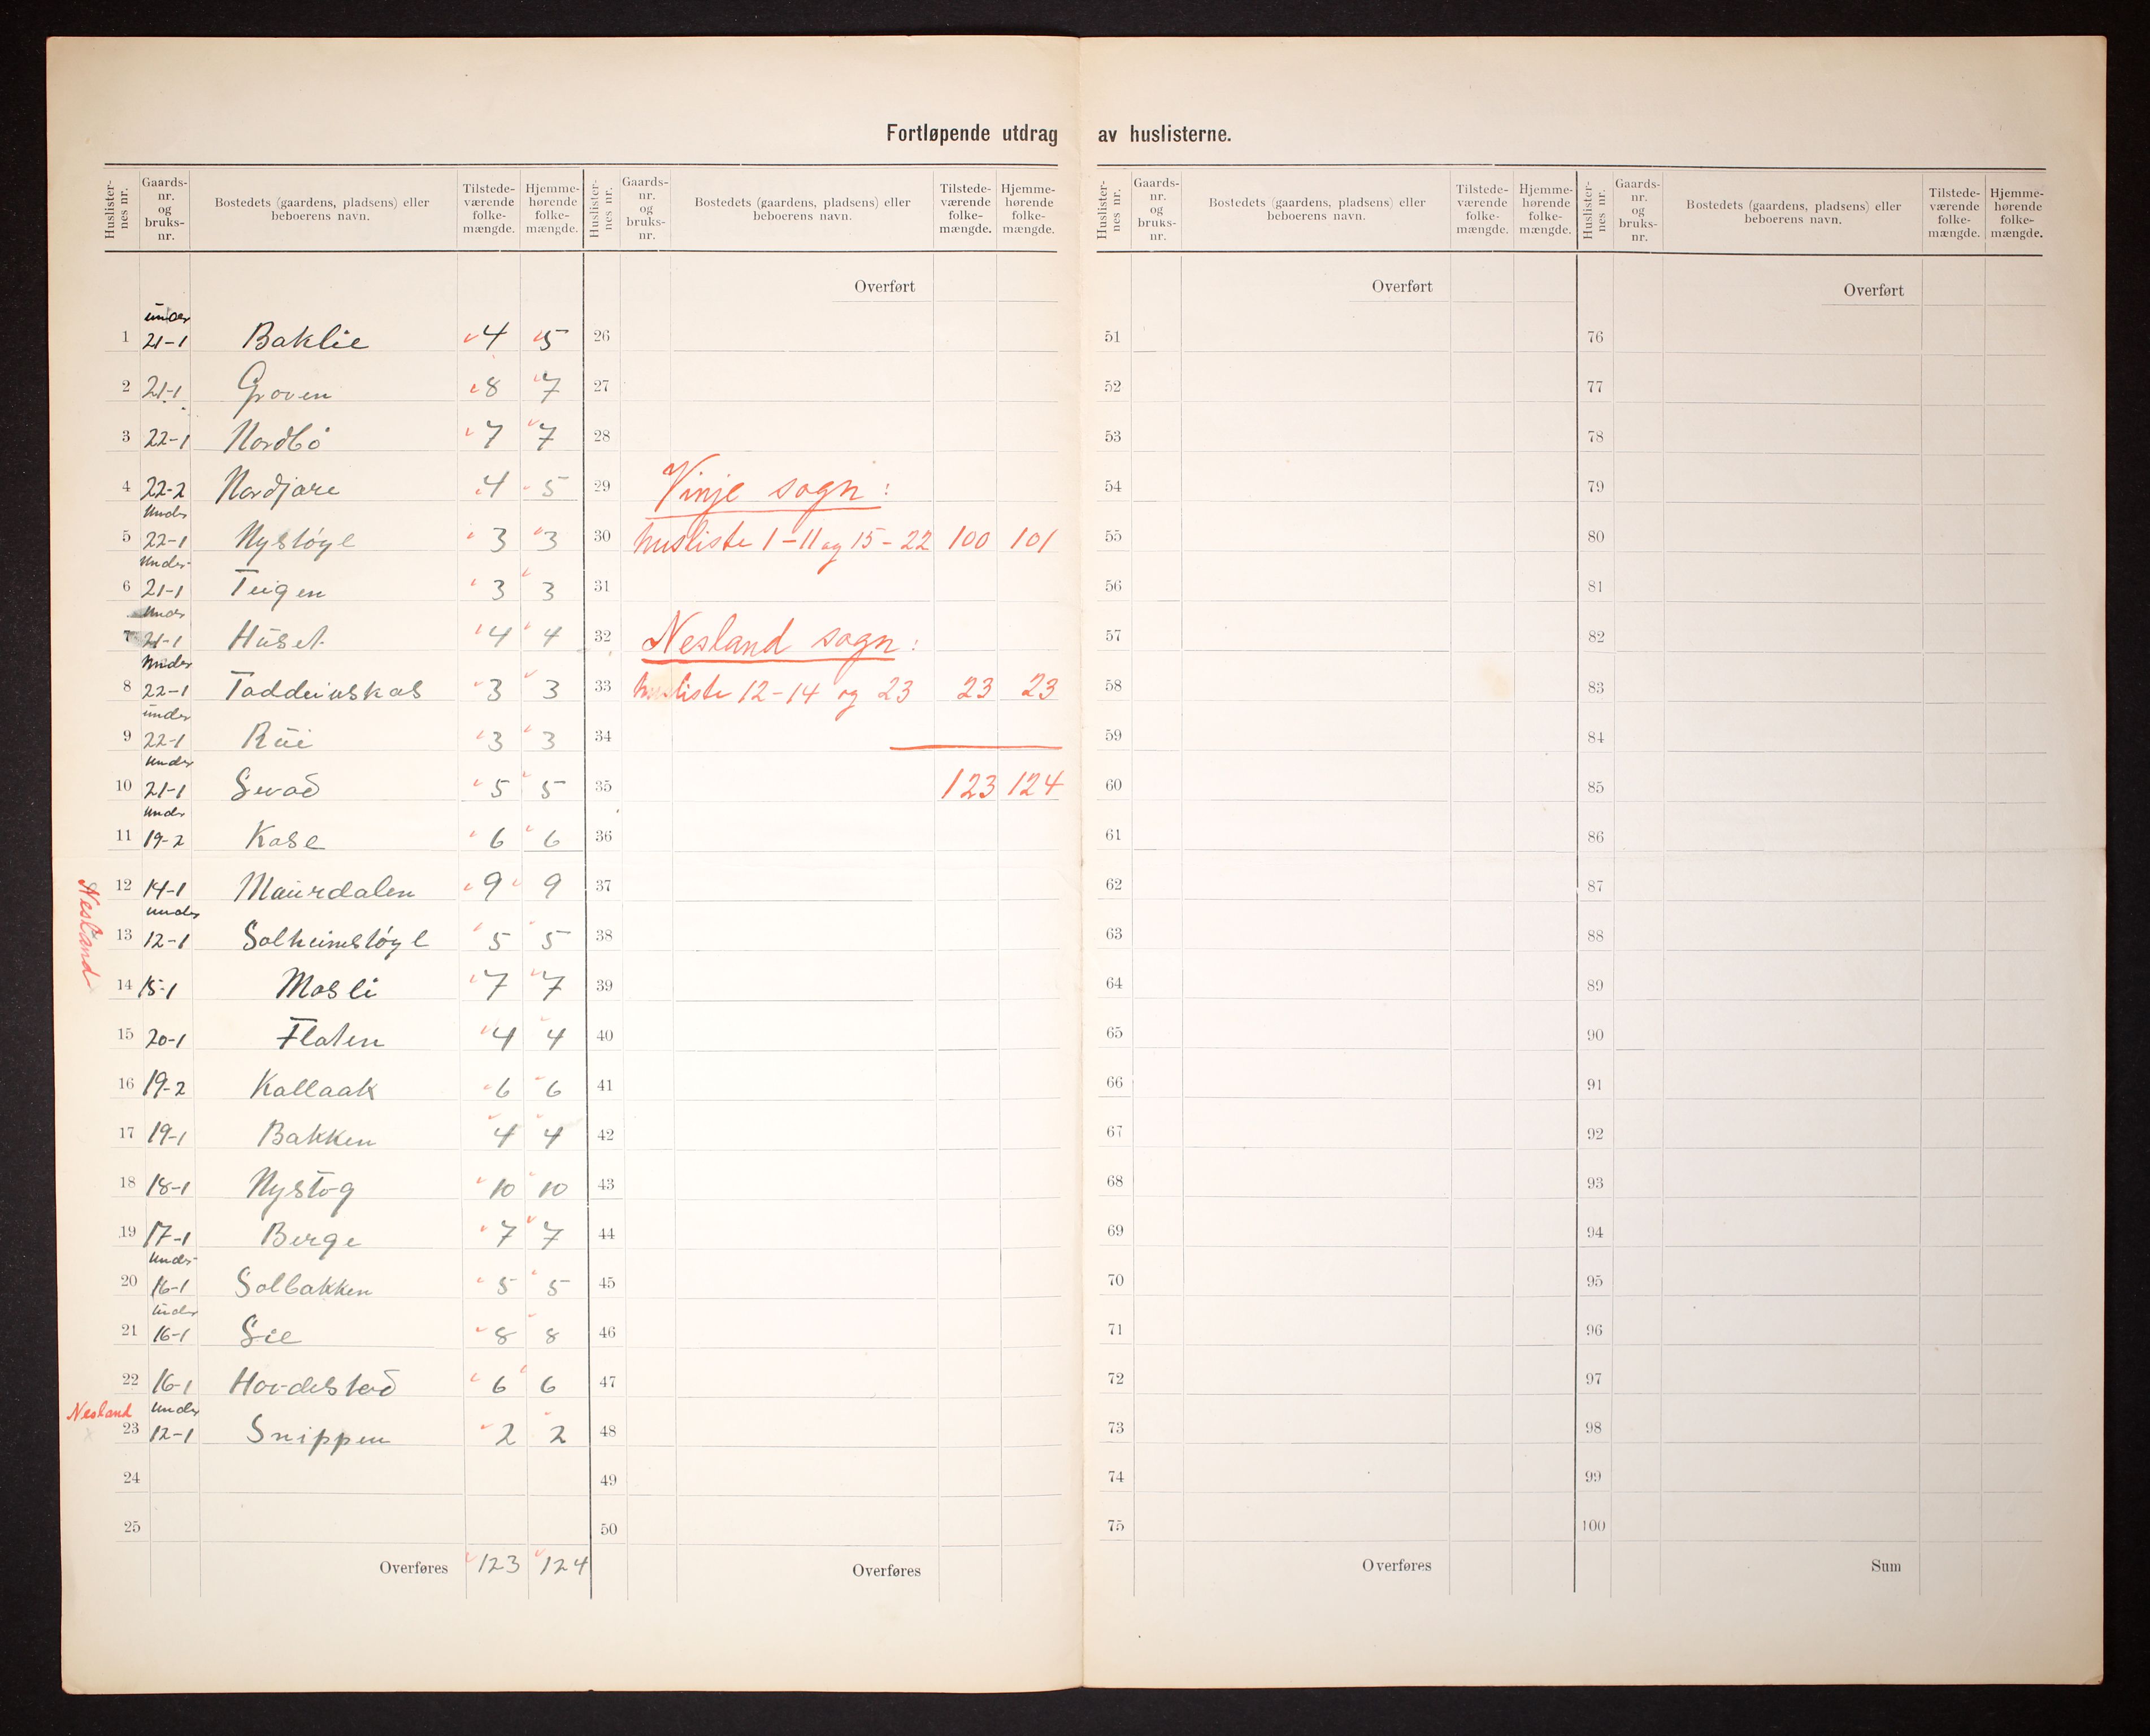 Fortløpende utdrag av huslisterne.
Huslister-nes nr. Gaards-nr. og bruks-nr. Bostedets (gaardens, pladsens) eller beboerens navn. Tilstede-værende folke-mængde. Hjemme-hørende folke-mængde.
Huslister-nes nr. Gaards-nr. og bruks-nr. Bostedets (gaardens, pladsens) eller beboerens navn. Tilstede-værende folke-mængde. Hjemme-hørende folke-mængde.
Huslister-nes nr. Gaards-nr. og bruks-nr. Bostedets (gaardens, pladsens) eller beboerens navn. Tilstede-værende folke-mængde. Hjemme-hørende folke-mængde.
Huslister-nes nr. Gaards-nr. og bruks-nr. Bostedets (gaardens, pladsens) eller beboerens navn. Tilstede-værende folke-mængde. Hjemme-hørende folke-mængde.
under
1 21-1 Baklie 4 5
2 21-1 Groven 8 7
3 22-1 Nordbö 7 7
4 22-2 Nordjare 4 5
under
5 22-1 Nystöyl 3 3
under
6 21-1 Teigen 3 3
under
7 21-1 Huset 4 4
under
8 22-1 3 3
under
9 22-1 Rui 3 3
under
10 21-1 5 5
under
11 19-2 Kase 6 6
Nesland
12 14-1 Maurdalen 9 9
under
13 12-1 Solheimstöyl 5 5
14 15-1 Mosli 7 7
15 20-1 Flaten 4 4
16 19-2 Kallaak 6 6
17 19-1 Bakken 4 4
18 18-1 Nystog 10 10
19 17-1 Berge 7 7
under
20 16-1 Solbakken 5 5
under
21 16-1 8 8
22 16-1 6 6
Nesland under
23 12-1 Snippen 2 2
24
25
Overføres 123 124
Overført
26
27
28
29 Vinje sogn:
30 husliste 1-11 og 15-22 100 101
31
32 Nesland sogn:
33 husliste 12-14 og 23 23 23
34
35 123 124
36
37
38
39
40
41
42
43
44
45
46
47
48
49
50
Overføres
Overført
51
52
53
54
55
56
57
58
59
60
61
62
63
64
65
66
67
68
69
70
71
72
73
74
75
Overføres
Overført
76
77
78
79
80
81
82
83
84
85
86
87
88
89
90
91
92
93
94
95
96
97
98
99
100
Sum